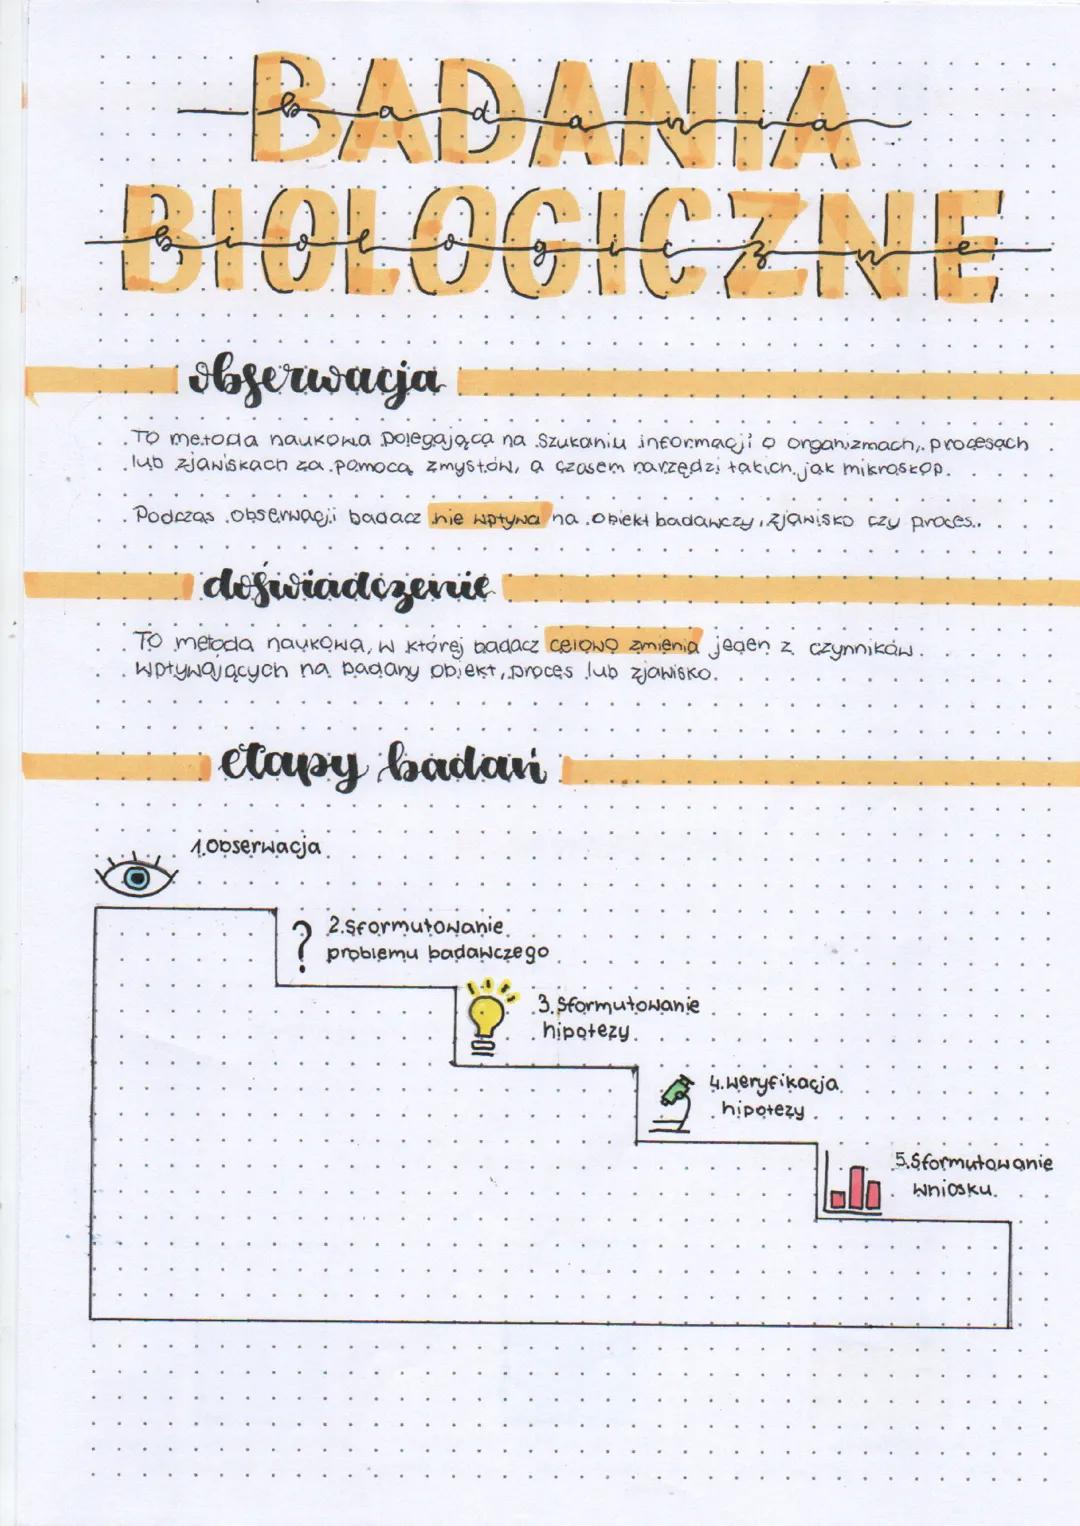 BADANIA
badania
BIOLOGICZNE
biologiczne
obserwacja
To metoda naukowa polegająca na szukaniu informacji o organizmach, procesach
lub zjawiskach za pomocą zmysłów, a czasem narzędzi takich jak mikroskop.
Podczas obserwacji badacz nie wpływa na obiekt badawczy, zjawisko czy proces.
doświadczenie
To metoda naukowa, w której badacz celowo zmienia jeden z czynników
wpływających na badany obiekt, proces lub zjawisko.
etapy badań
1.Obserwacja
2.Sformułowanie
problemu badawczego
?
3.Sformułowanie
hipotezy
4.Weryfikacja
hipotezy
5.Sformułowanie
wniosku